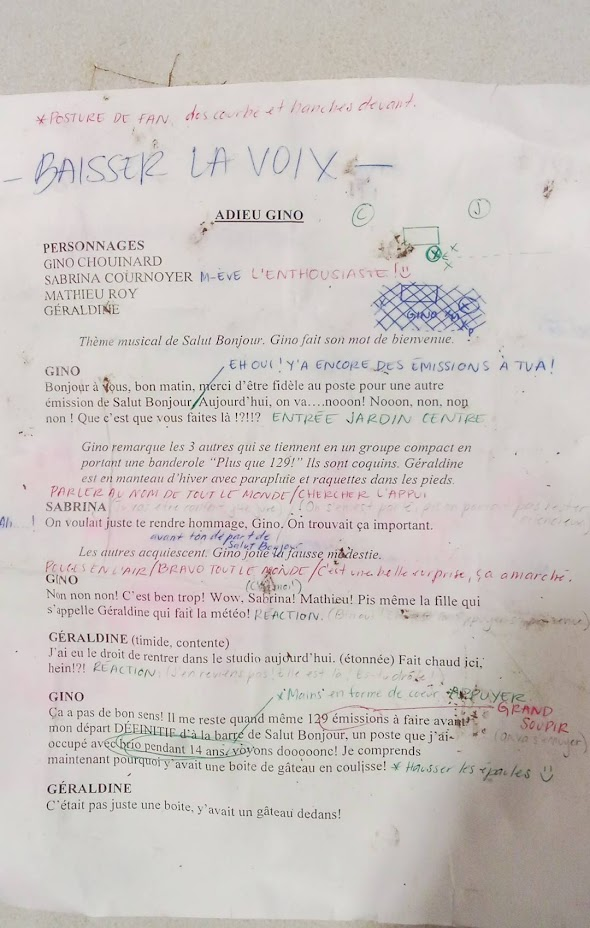 *POSTURE DE FAN, dos courbé et hanches devant.
- BAISSER LA VOIX -
ADIEU GINO
C J
PERSONNAGES
GINO CHOUINARD
SABRINA COURNOYER M-EVE L'ENTHOUSIASTE!
MATHIEU ROY
GÉRALDINE
GINO
Thème musical de Salut Bonjour. Gino fait son mot de bienvenue.
EH OUI! Y'A ENCORE DES ÉMISSIONS À TVA!
GINO
Bonjour à vous, bon matin, merci d'être fidèle au poste pour une autre
émission de Salut Bonjour. Aujourd'hui, on va….nooon! Nooon, non, non
non ! Que c'est que vous faites là !?!!? ENTRÉE JARDIN CENTRE
Gino remarque les 3 autres qui se tiennent en un groupe compact en
portant une banderole "Plus que 129!" Ils sont coquins. Géraldine
est en manteau d'hiver avec parapluie et raquettes dans les pieds.
PARLER AU NOM DE TOUT LE MONDE/CHERCHER L'APPUI
SABRINA
Ah...! On voulait juste te rendre hommage, Gino. On trouvait ça important.
avant ton départ de
Salut Bonjour
Les autres acquiescent. Gino joue la fausse modestie.
POUCES EN L'AIR/BRAVO TOUT LE MONDE/C'est une belle surprise, ça a marché.
GINO
Non non non! C'est ben trop! Wow, Sabrina! Mathieu! Pis même la fille qui
s'appelle Géraldine qui fait la météo! RÉACTION.
GÉRALDINE (timide, contente)
J'ai eu le droit de rentrer dans le studio aujourd'hui. (étonnée) Fait chaud ici,
hein!?! RÉACTION
*Mains en forme de coeur APPUYER
GINO GRAND
Ça a pas de bon sens! Il me reste quand même 129 émissions à faire avant SOUPIR
mon départ DÉFINITIF d'à la barre de Salut Bonjour, un poste que j'ai
occupé avec brio pendant 14 ans, voyons dooooonc! Je comprends
maintenant pourquoi y'avait une boite de gâteau en coulisse! * Hausser les épaules
GÉRALDINE
C'était pas juste une boite, y'avait un gâteau dedans!